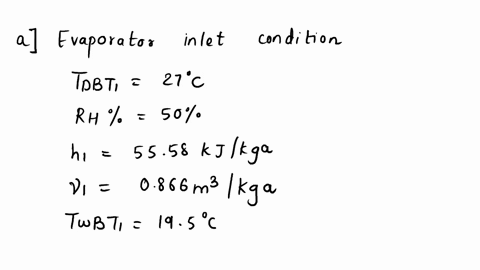 a] Evaporator inlet condition
TDBT1 = 27°C
RH % = 50%
h1 = 55.58 kJ/kga
ν1 = 0.866 m³/kga
TWBT1 = 19.5°C